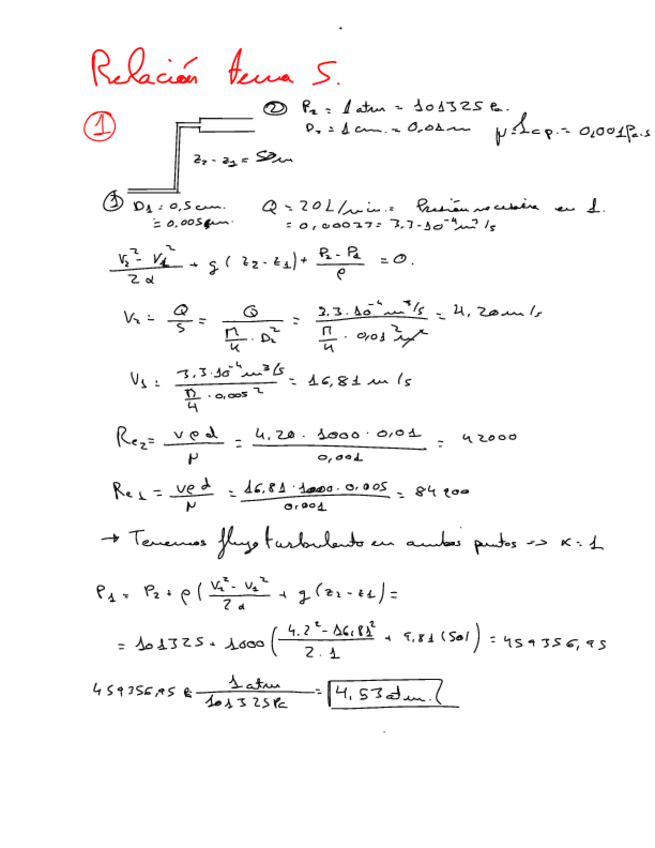 Relación tema 5.
① ② P₂ = 1 atm = 101325 Pa.
D₂ = 1 cm. = 0,01 m μ = 1 cp. = 0,001 Pa.s
z₂ - z₁ = 50 m
① D₁ = 0,5 cm. Q = 20 L/min. = Presión necesaria en 1.
= 0,005 m. = 0,00033 = 3,3·10⁻⁴ m³/s
(V₂² - V₁²)/(2α) + g (z₂ - z₁) + (P₂ - P₁)/ρ = 0.
V₂ = Q/S = Q/(π/4 · D₂²) = (3.3·10⁻⁴ m³/s)/(π/4 · 0,01² m²) = 4,20 m/s
V₁ = (3,3·10⁻⁴ m³/s)/(π/4 · 0,005²) = 16,81 m/s
Re₂ = vρd/μ = (4,20 · 1000 · 0,01)/0,001 = 42000
Re₁ = vρd/μ = (16,81 · 1000 · 0,005)/0,001 = 84200
→ Tenemos flujo turbulento en ambos puntos => α = 1
P₁ = P₂ + ρ((V₂² - V₁²)/(2α) + g (z₂ - z₁)) =
= 101325 + 1000 ((4.2² - 16,81²)/(2·1) + 9,81 (50)) = 459356,95
459356,95 Pa · 1 atm/101325 Pa = 4,53 atm.